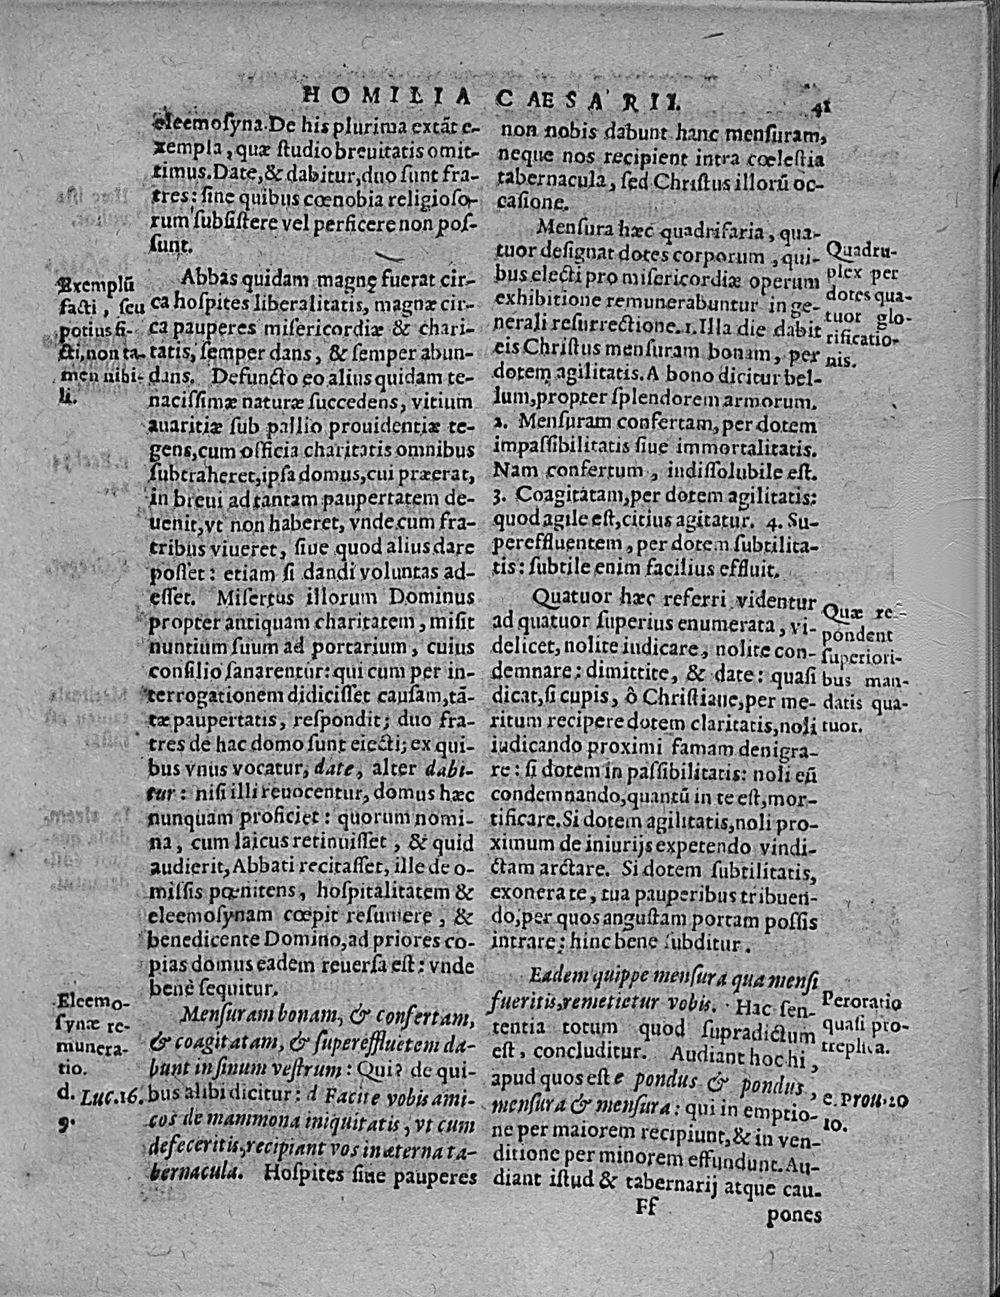 HOMILIA CAESARII. 41
eleemosyna. De his plurima extãt e-
xempla, quæ studio breuitatis omit-
timus. Date, & dabitur, duo sunt fra-
tres: sine quibus cœnobia religioso-
rum subsistere vel perficere non pos-
sunt.
Exemplũ
facti, seu
potius fi-
cti, non ta-
men nihi-
li.
Abbas quidam magnę fuerat cir-
ca hospites liberalitatis, magnæ cir-
ca pauperes misericordiæ & chari-
tatis, semper dans, & semper abun-
dans. Defuncto eo alius quidam te-
nacissimæ naturæ succedens, vitium
auaritiæ sub pallio prouidentiæ te-
gens, cum officia charitatis omnibus
subtraheret, ipsa domus, cui præerat,
in breui ad tantam paupertatem de-
uenit, vt non haberet, vnde cum fra-
tribus viueret, siue quod alius dare
posset: etiam si dandi voluntas ad-
esset. Misertus illorum Dominus
propter antiquam charitatem, misit
nuntium suum ad portarium, cuius
consilio sanarentur: qui cum per in-
terrogationem didicisset causam, tã-
tæ paupertatis, respondit; duo fra-
tres de hac domo sunt eiecti; ex qui-
bus vnus vocatur, date, alter dabi-
tur: nisi illi reuocentur, domus hæc
nunquam proficiet: quorum nomi-
na, cum laicus retinuisset, & quid
audierit, Abbati recitasset, ille de o-
missis pœnitens, hospitalitatem &
eleemosynam cœpit resumere, &
benedicente Domino, ad priores co-
pias domus eadem reuersa est: vnde
benè sequitur.
Eleemo-
synæ re-
munera-
tio.
d. Luc. 16.
9.
Mensuram bonam, & confertam,
& coagitatam, & supereffluētem da-
bunt in sinum vestrum: Qui? de qui-
bus alibi dicitur: d Facite vobis ami-
cos de mammona iniquitatis, vt cum
defeceritis, recipiant vos in æterna ta-
bernacula. Hospites siue pauperes
non nobis dabunt hanc mensuram,
neque nos recipient intra cœlestia
tabernacula, sed Christus illorũ oc-
casione.
Mensura hæc quadrifaria, qua-
tuor designat dotes corporum, qui-
bus electi pro misericordiæ operum
exhibitione remunerabuntur in ge-
nerali resurrectione. 1. Illa die dabit
eis Christus mensuram bonam, per
dotem agilitatis. A bono dicitur bel-
lum, propter splendorem armorum.
2. Mensuram confertam, per dotem
impassibilitatis siue immortalitatis.
Nam confertum, indissolubile est.
3. Coagitatam, per dotem agilitatis:
quod agile est, citius agitatur. 4. Su-
pereffluentem, per dotem subtilita-
tis: subtile enim facilius effluit.
Quadru-
plex per
dotes qua-
tuor glo-
rificatio-
nis.
Quatuor hæc referri videntur
ad quatuor superius enumerata, vi-
delicet, nolite iudicare, nolite con-
demnare: dimittite, & date: quasi
dicat, si cupis, ô Christiane, per me-
ritum recipere dotem claritatis, noli
iudicando proximi famam denigra-
re: si dotem in passibilitatis: noli eũ
condemnando, quantũ in te est, mor-
tificare. Si dotem agilitatis, noli pro-
ximum de iniurijs expetendo vindi-
ctam arctare. Si dotem subtilitatis,
exonera te, tua pauperibus tribuen-
do, per quos angustam portam possis
intrare: hinc bene subditur.
Quæ re-
pondent
superiori-
bus man-
datis qua-
tuor.
Eadem quippe mensura qua mensi
fueritis, remetietur vobis. Hac sen-
tentia totum quod supradictum
est, concluditur. Audiant hoc hi,
apud quos est e pondus & pondus,
mensura & mensura: qui in emptio-
ne per maiorem recipiunt, & in ven-
ditione per minorem effundunt. Au-
diant istud & tabernarij atque cau-
Peroratio
quasi pro-
treptica.
e. Prou. 20
10.
Ff
pones